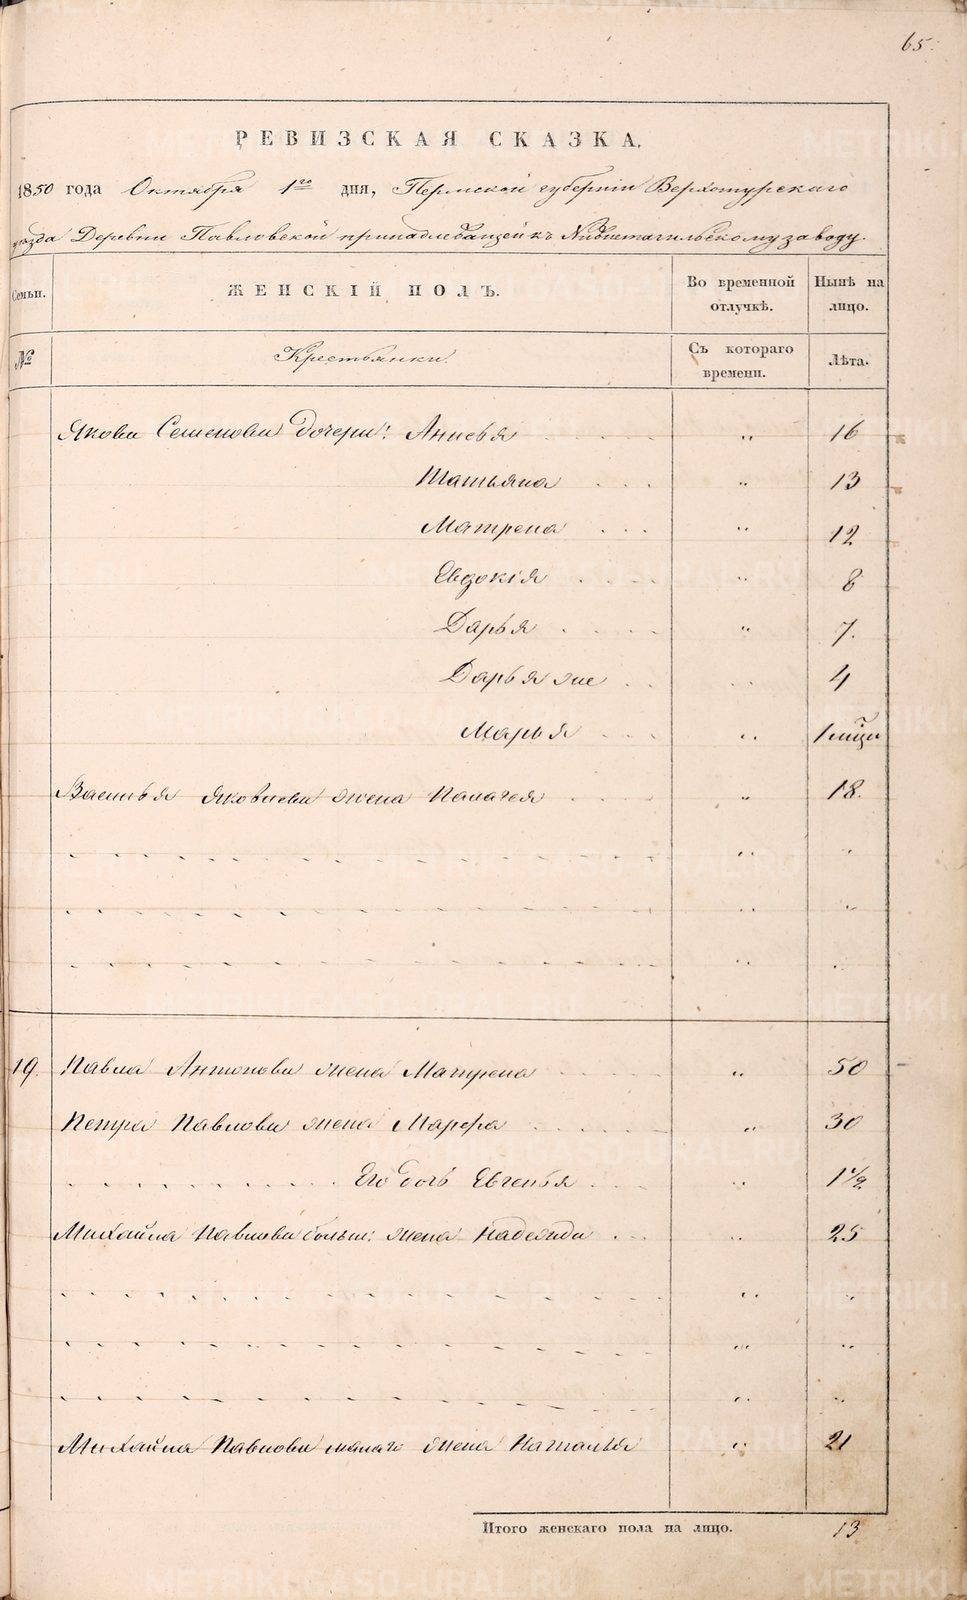 65.
РЕВИЗСКАЯ СКАЗКА.
1850 года Октября 1го дня, Пермской губерніи Верхотурскаго
уезда Деревни Павловской принадлежащей къ Нижнетагильскому заводу.
Семьи. ЖЕНСКІЙ ПОЛЪ. Во временной отлучкѣ. Нынѣ на лицо.
№ Крестьянки. Съ котораго времени. Лѣта.
Якова Семенова дочери: Анисья . . . . „ 16
Татьяна . . . „ 13
Матрена . . . „ 12
Евдокія . . . . „ 8
Дарья . . . . „ 7.
Дарья же . . „ 4
Марья . . . „ 1 мѣц
Василья Яковлева жена Палагея . . . . „ 18.
19. Павла Антонова жена Матрена . . . . . „ 50
Петра Павлова жена Марфа . . . . . . „ 30
Его дочь Евгенья . . . „ 1 1/2
Михайла Павлова больш: жена Надежда . . . „ 25
Михайла Павлова малаго жена Наталья „ 21
Итого женскаго пола на лицо. 13
METRIKI.GASO-URAL.RU